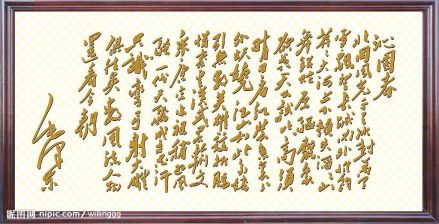 沁园春
北国风光千里冰封万里
雪飘望长城内外惟馀
莽莽大河上下顿失滔滔山
舞银蛇原驰腊象
欲与天公试比高须
晴日看红装素裹
分外妖娆江山如此多娇
引无数英雄竞折腰
惜秦皇汉武略输文
采唐宗宋祖稍逊风
骚一代天骄成吉思汗
只识弯弓射大雕
俱往矣数风流人物
还看今朝
毛泽东
昵图网 nipic.com/willinggg